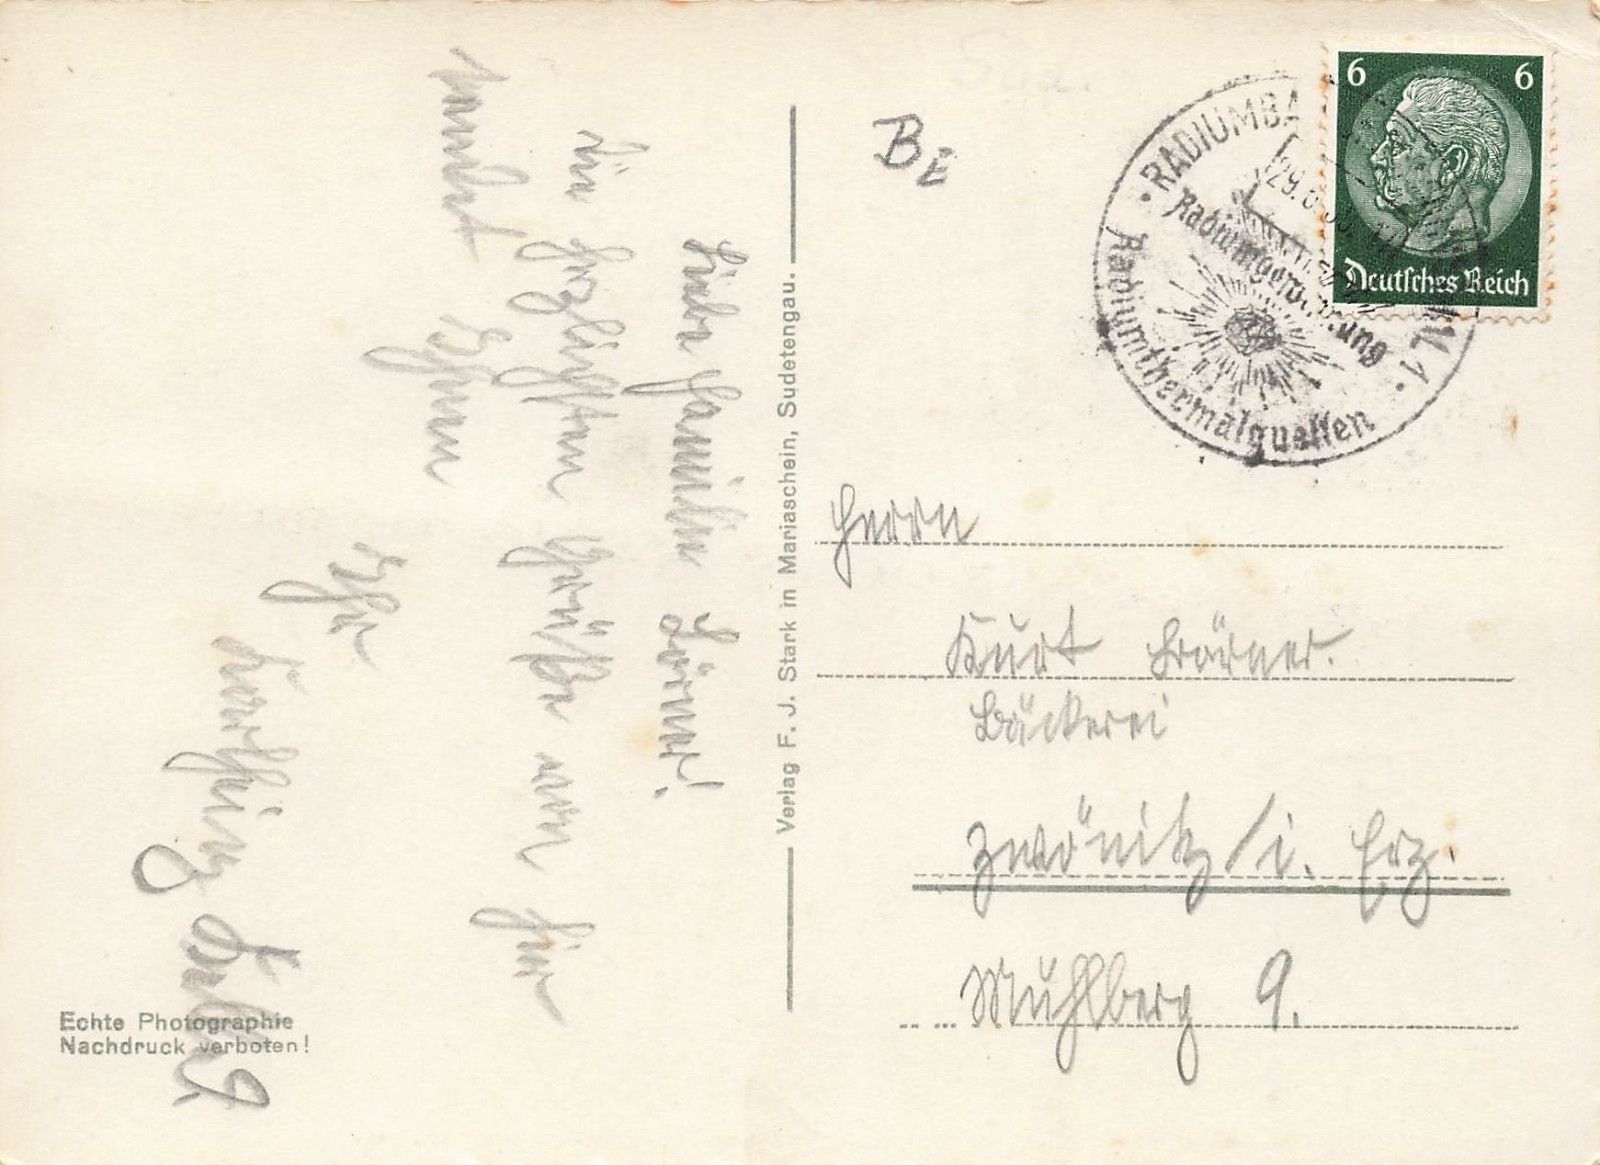 6 6
Deutsches Reich
RADIUMBA
Radiumgewinnung
Radiumthermalquellen
BE
Herrn
Kurt Börner.
Bäckerei
Zwönitz/i. Erz.
Muhlberg 9.
Verlag F. J. Stark in Mariaschein, Sudetengau.
Liebe Familie Börner!
Die herzlichsten Grüße von hier
sendet Ihnen
Ihr
Echte Photographie
Nachdruck verboten!